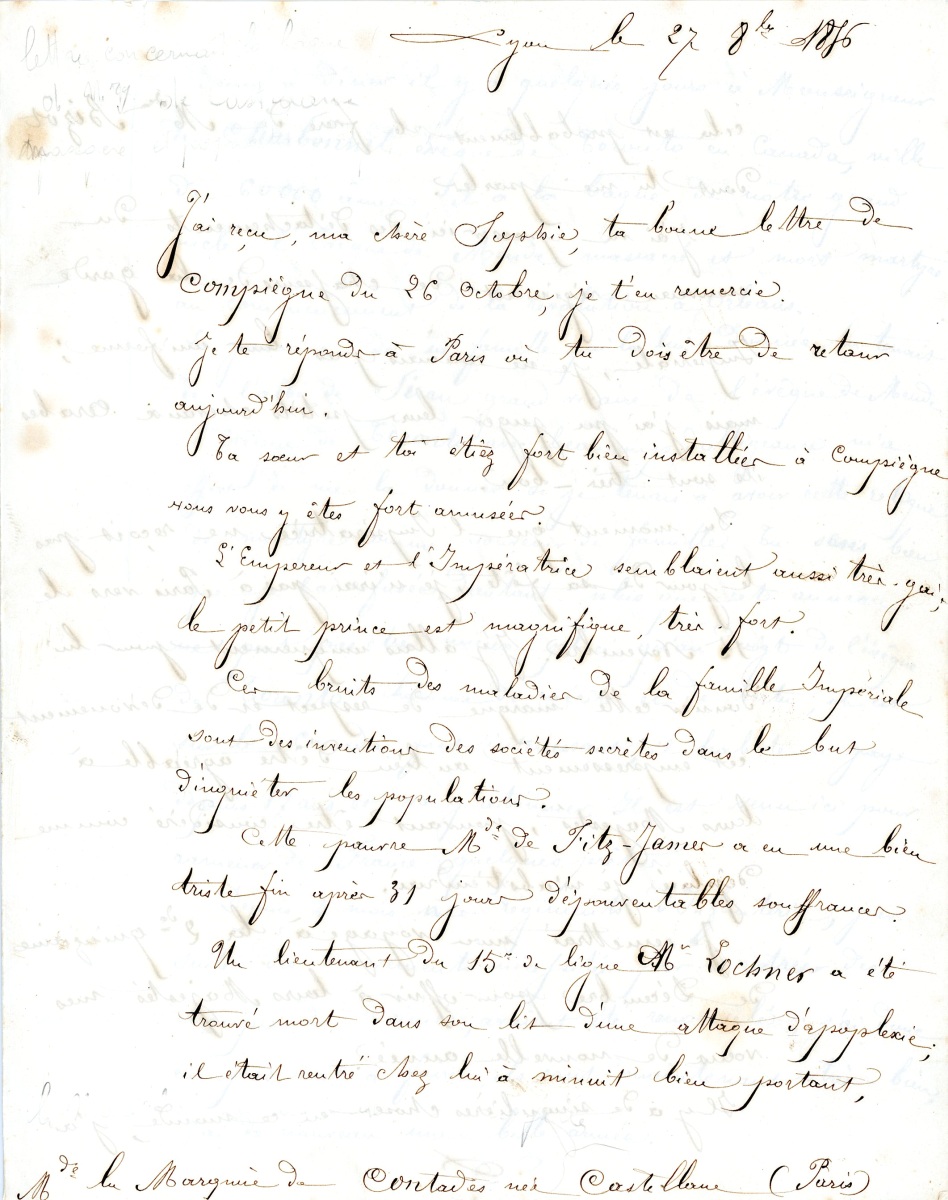 lettre concernant
Lyon le 27 8bre 1856
J'ai reçu, ma chère Sophie, ta bonne lettre de
Compiègne du 26 octobre, je t'en remercie.
Je te réponds à Paris où tu dois être de retour
aujourd'hui.
Ta sœur et toi étiez fort bien installées à Compiègne
vous vous y êtes fort amusées.
L'Empereur et l'Impératrice semblaient aussi très-gais;
le petit prince est magnifique, très-fort.
Ces bruits des maladies de la famille Impériale
sont des inventions des sociétés secrètes dans le but
d'inquiéter les populations.
Cette pauvre Mde de Fitz-James a eu une bien
triste fin après 31 jours d'épouventables souffrances.
Un lieutenant du 15e de ligne Mr Lochner a été
trouvé mort dans son lit d'une attaque d'apoplexie;
il était rentré chez lui à minuit bien portant,
Mde la Marquise de Contades née Castellane (Paris)